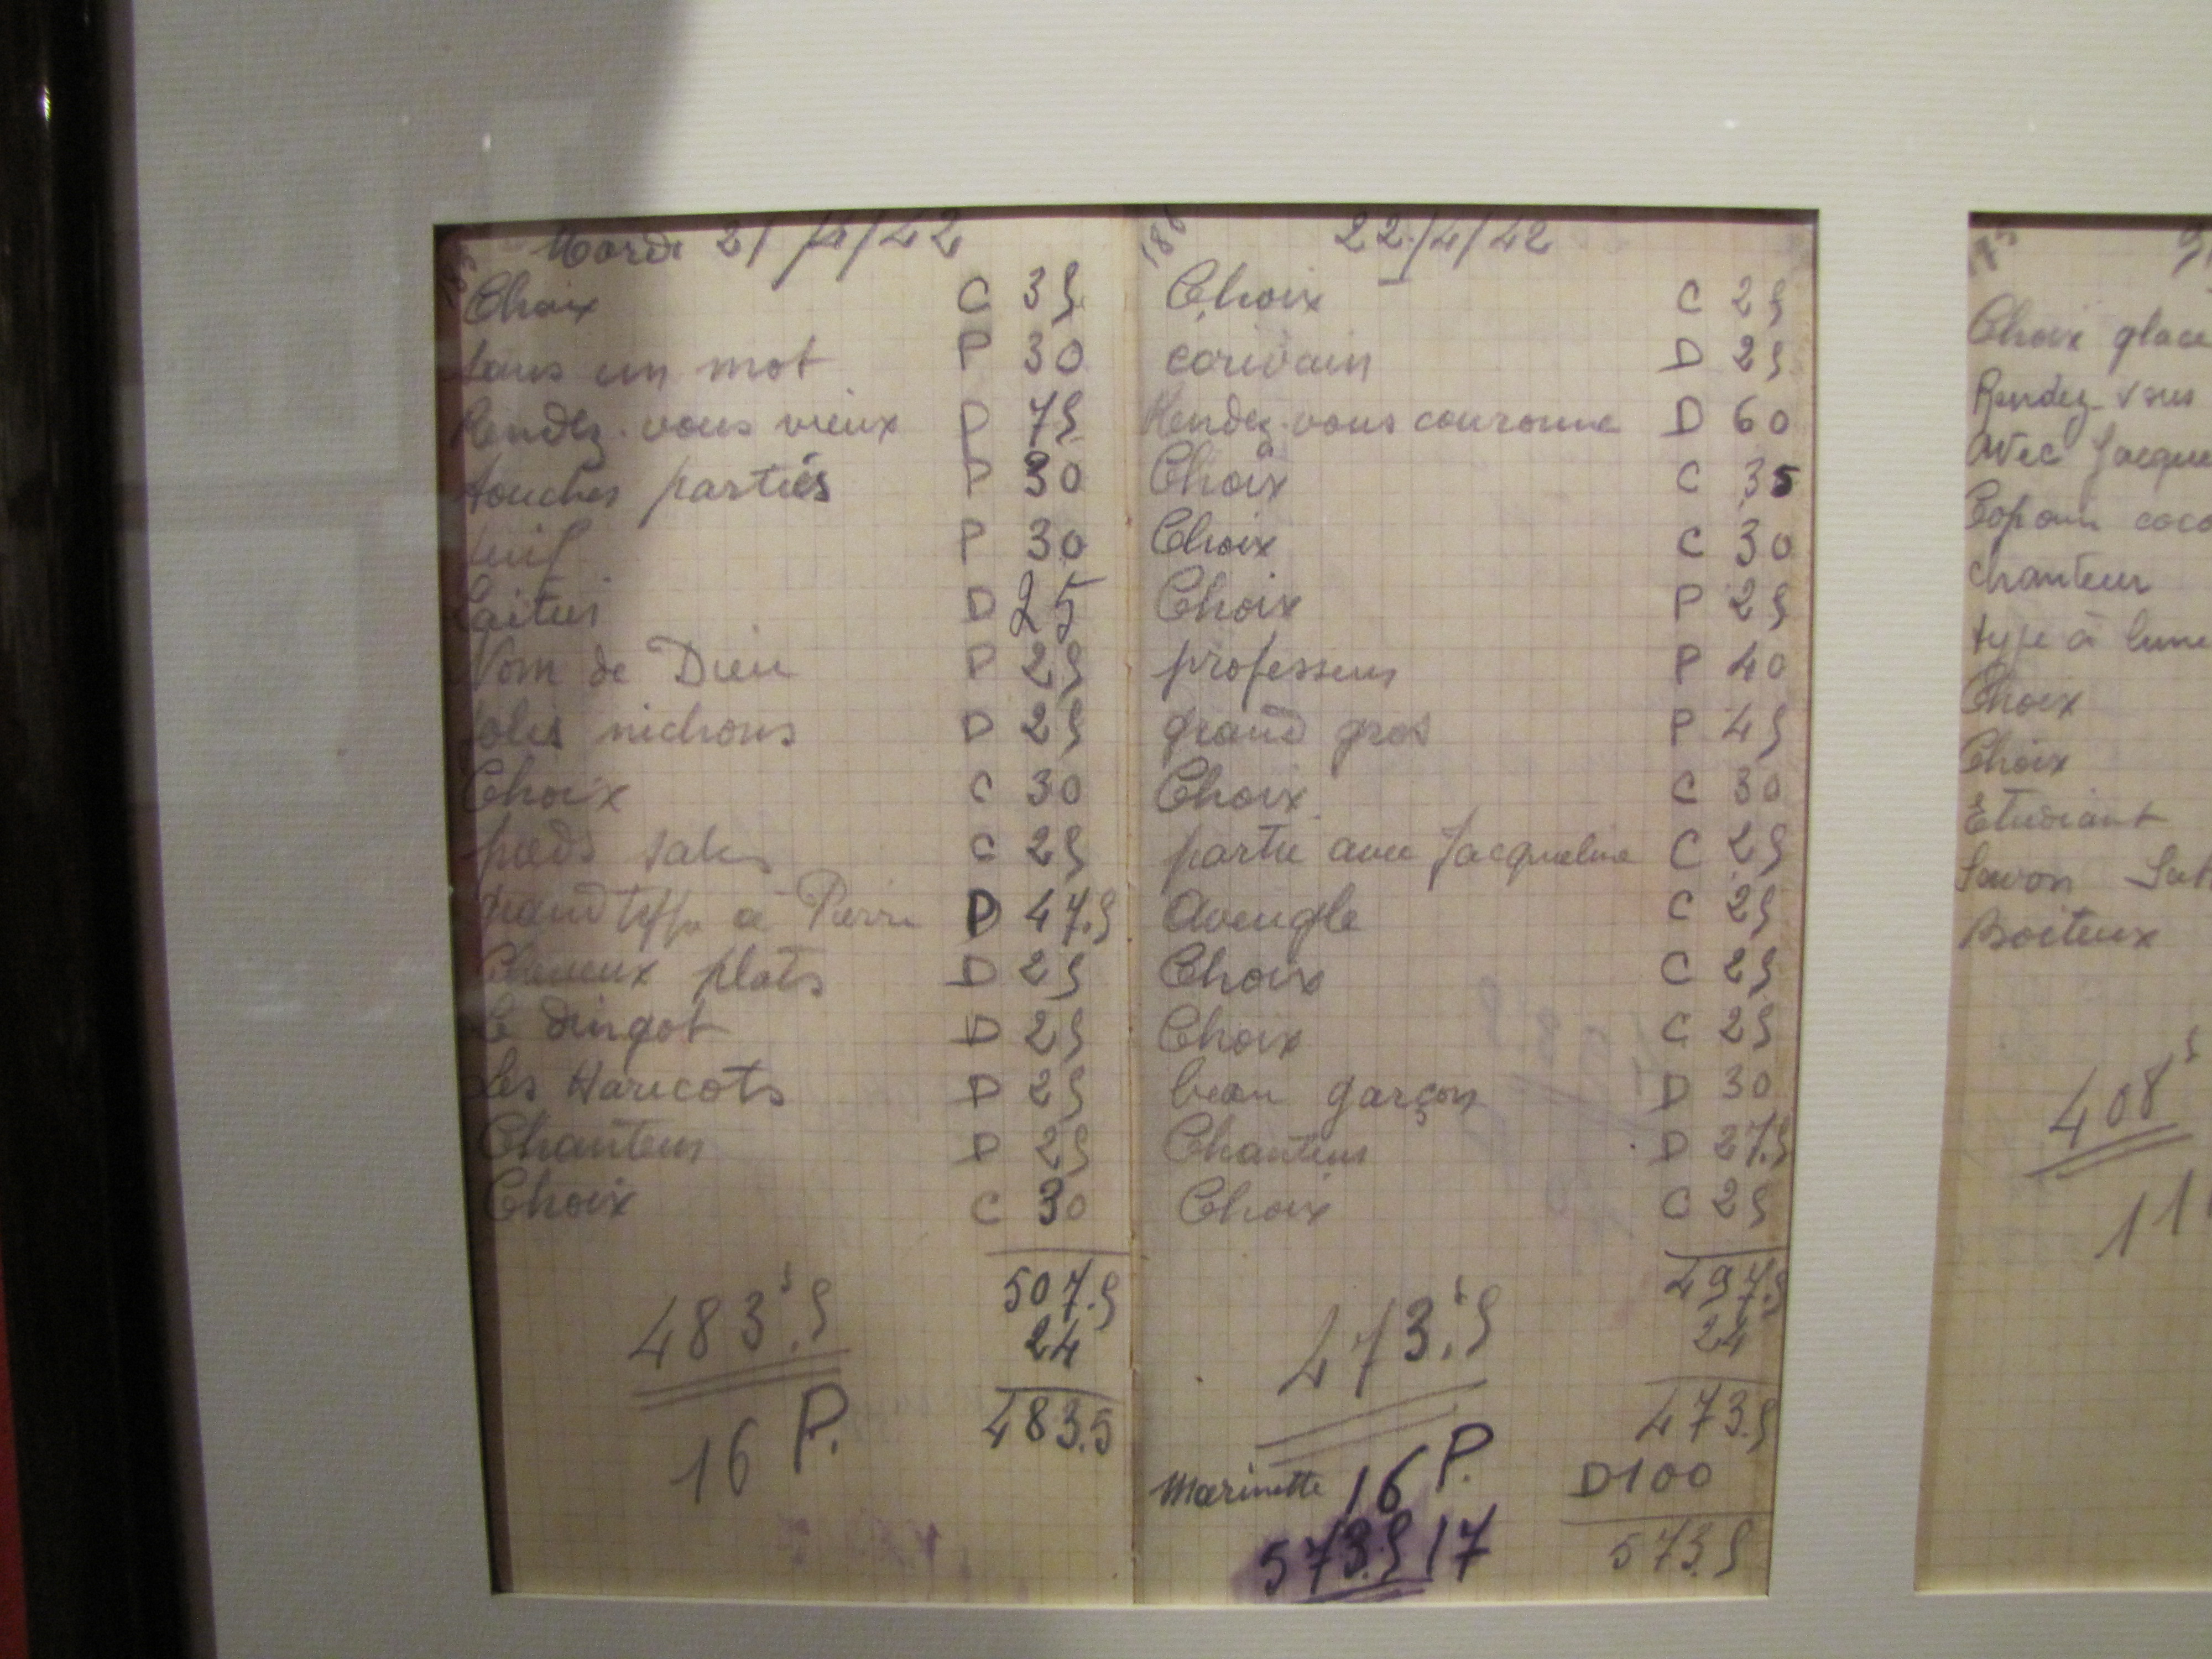 Mardi 21/4/42
Choix C 35
sans un mot P 30
Rendez-vous vieux D 75
touches parties P 30
P 30
D 25
Nom de Dieu P 25
Jolis nichons D 25
Choix C 30
pieds sales C 25
grand type à Pierre D 47.5
Cheveux plats D 25
Le dingot D 25
Les Haricots D 25
Chanteur D 25
Choix C 30
507.5
24
483.5
483.5
16 P.
186
22/4/42
Choix C 25
écrivain D 25
Rendez-vous couronne D 60
Choix C 35
Choix C 30
Choix P 25
professeur P 40
grand gros P 45
Choix C 30
partie avec Jacqueline C 25
Aveugle C 25
Choix C 25
Choix C 25
beau garçon D 30
Chanteur D 27.5
Choix C 25
497.5
24
473.5
473.5
16 P.
Marinette D 100
573.5 17
573.5
Choix glace
Rendez-vous
avec Jacque
Copain coco
chanteur
type à lune
Choix
Choix
Etudiant
Savon
Boiteux
408
11